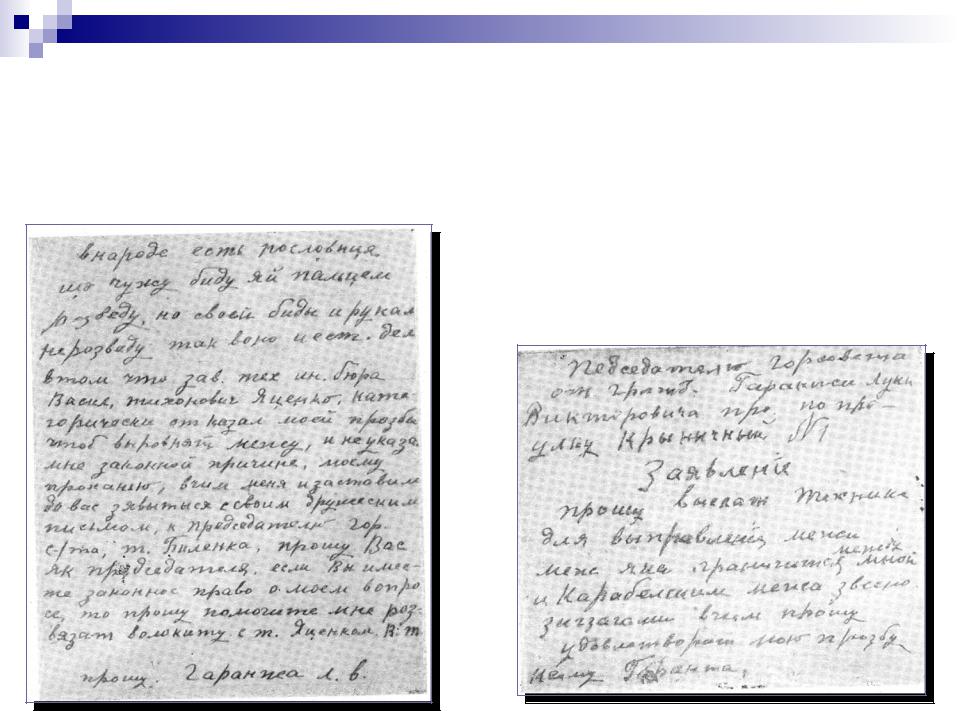 внароде есть пословица
що чужу биду яй пальцем
розведу, но своей биды и рукам
нерозведу так воно и ест. дел
втом что зав. тех ин. бюра
Васил, тихонович Яценко, ката
горически отказал моей прозбы
чтоб выровнят межу, и не указа
мне законной причине, моему
проханью, вчим меня изаставим
до вас зявыться с своим дружеским
письмом, к председателю гор.
с/та, т. Пиленка, прошу Вас
як председателя. если Вы имее-
те законное право о моем вопро
се, то прошу помогите мне роз-
вязат волокиту с т. Яценком, В. т.
прошу. Гаранжа л. в.
Педседателю горсовета
от гражд. Гаранжи Луки
Викторовича про. по про-
улку Крыничный №1
Заявление
прошу выслат техника
для выправления межи
меж яка граничится между мной
и Карабелским межа звсено
зигзагами вчим прошу
удовлетворит мою прозбу
кему Гаранжа.